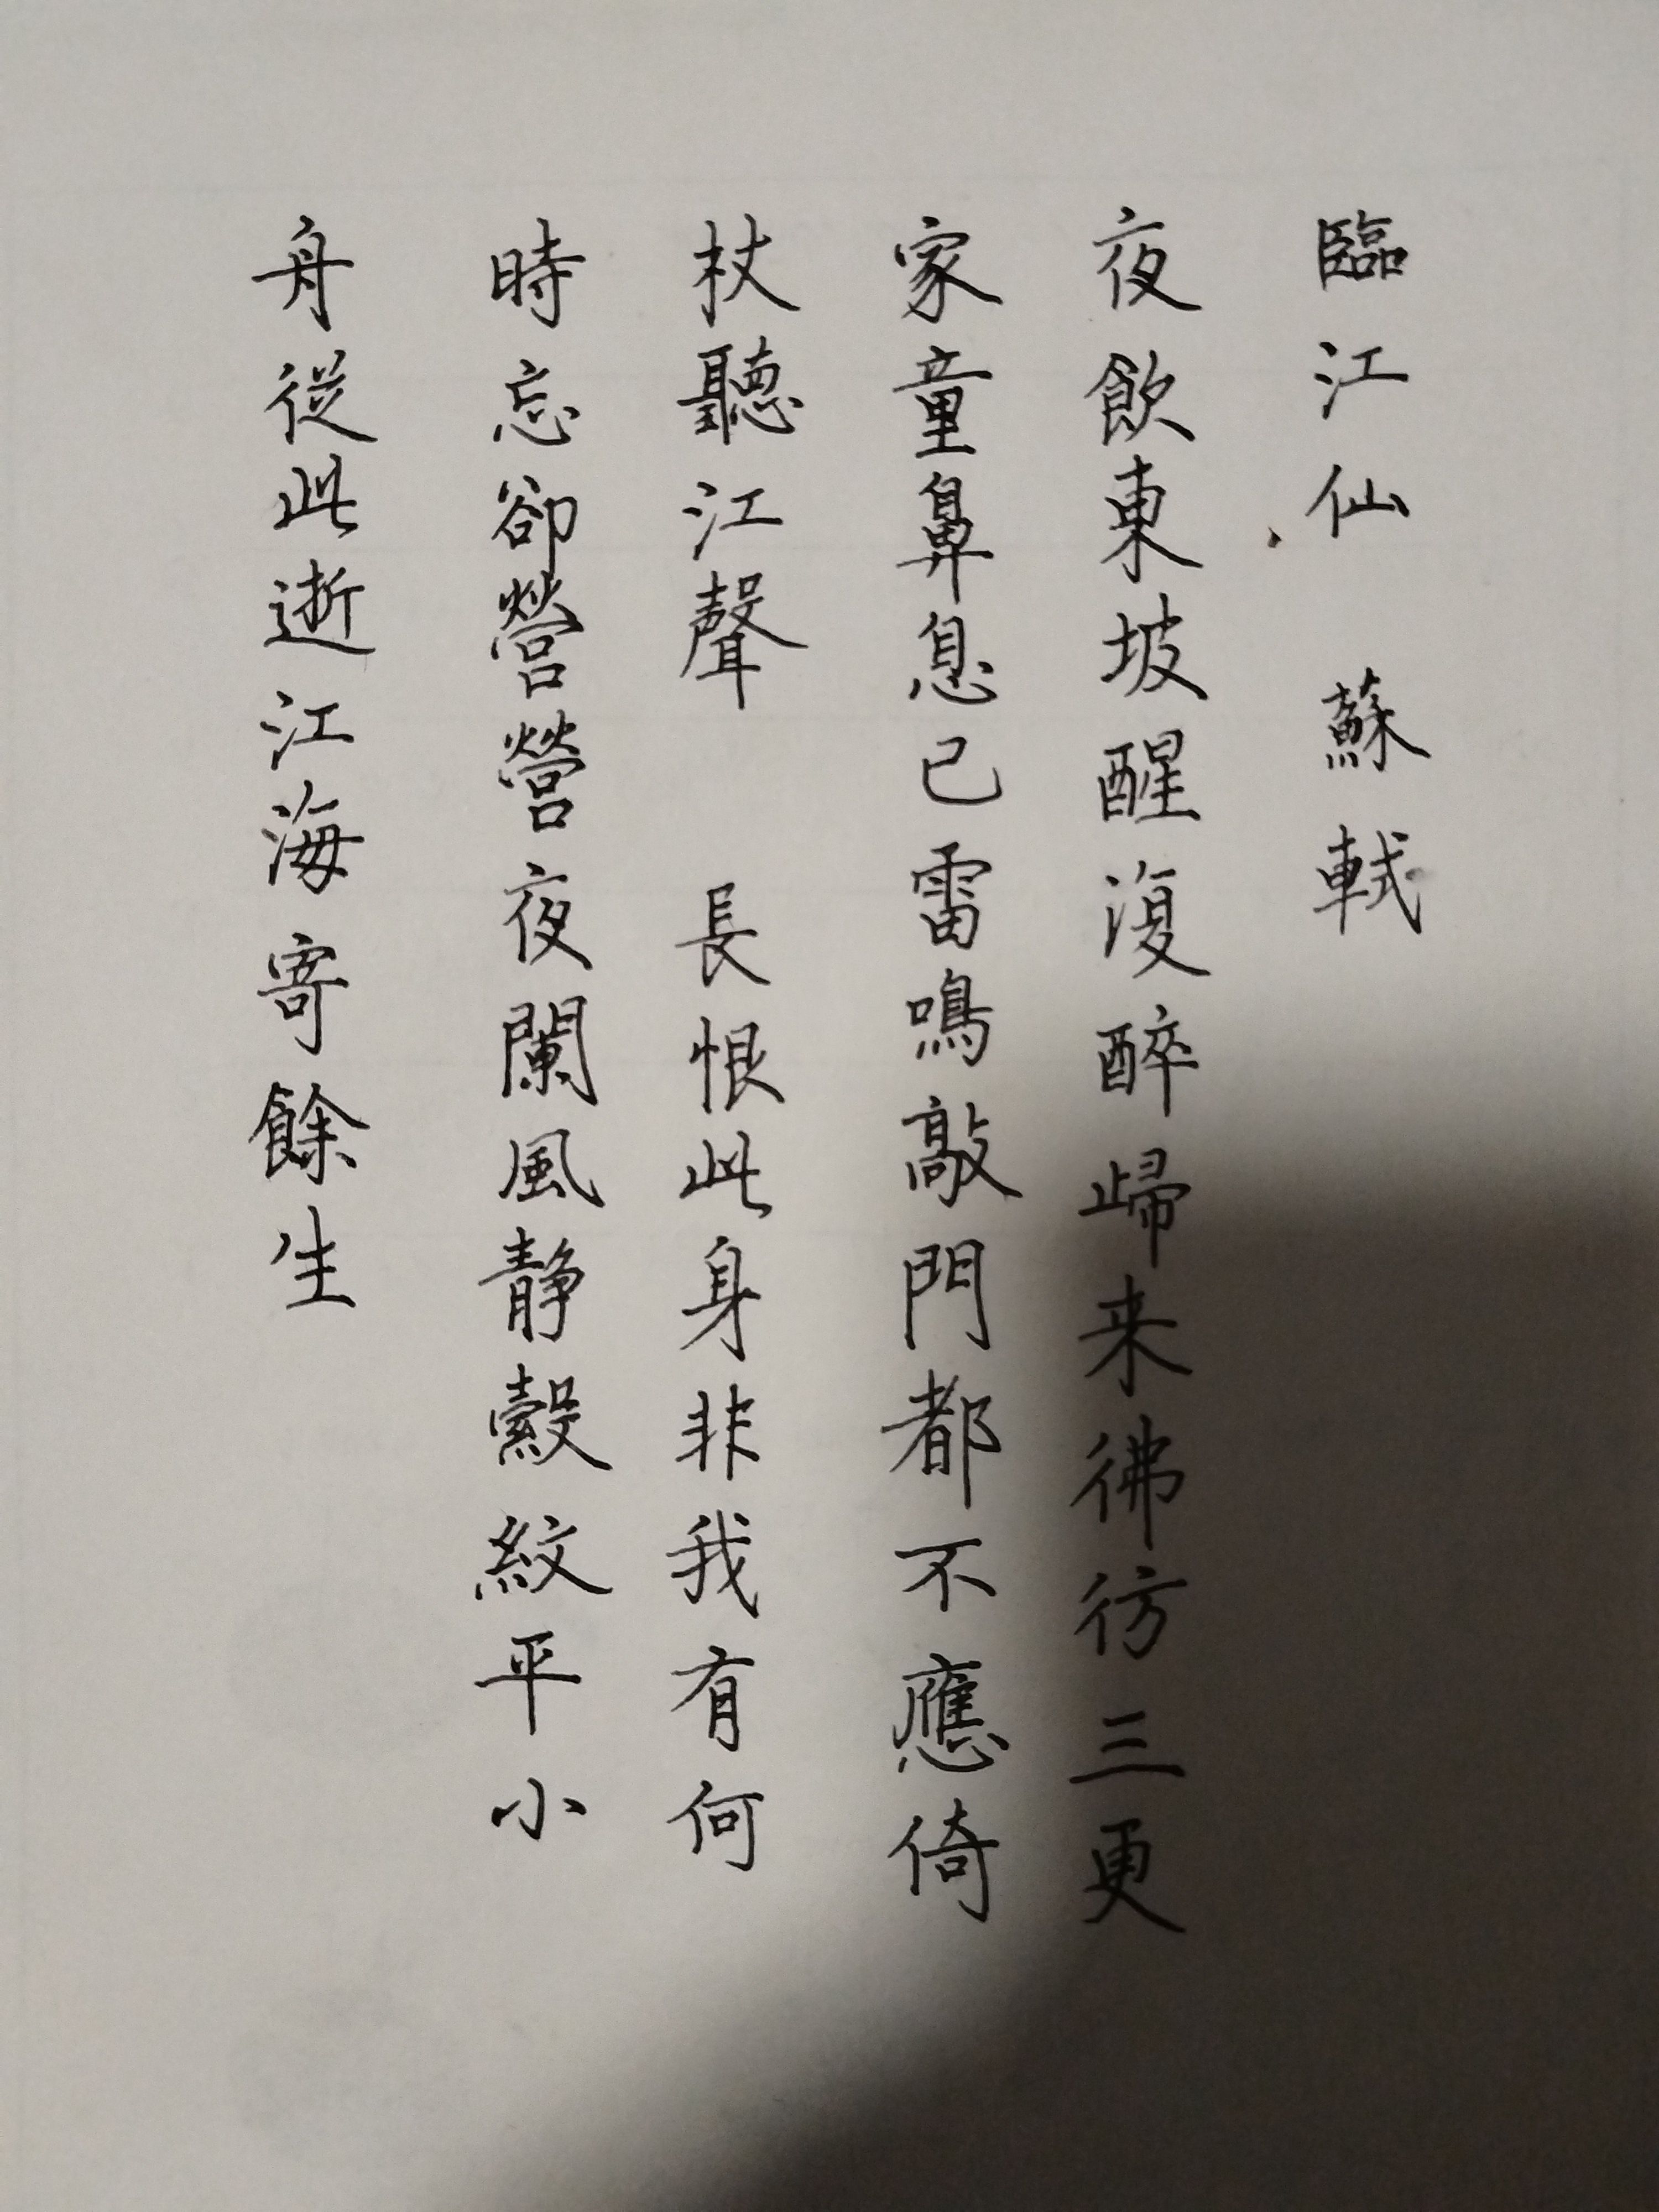 臨江仙 蘇軾
夜飲東坡醒復醉歸来彿彷三更
家童鼻息已雷鳴敲門都不應倚
杖聽江聲 長恨此身非我有何
時忘卻營營夜闌風靜縠紋平小
舟從此逝江海寄餘生